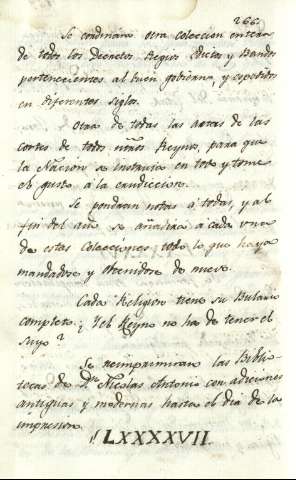 266.
Se condinára otra coleccion entera
de todos los Decretos Regios Edictos y Bandos
pertenecientes al buen gobierno, y expedidos
en diferentes siglos.
Otra de todas las actas de las
cortes de todos nr̃os Reynos, para que
la Nacion se instruia en todo y tome
el gusto á la erudiccion.
Se pondran notas á todas, y al
fin del año se añadira á cada una
de estas colecciones todo lo que haya
mandadose y obtenidose de nuevo.
Cada Religion tiene su Bulario
completo; y el Reyno no ha de tener el
suyo?
Se reimprimiran las Biblio-
tecas de Dn. Nicolas Antonio con adiciones
antiguas y modernas hasta el dia de la
impresion.
LXXXXVII.